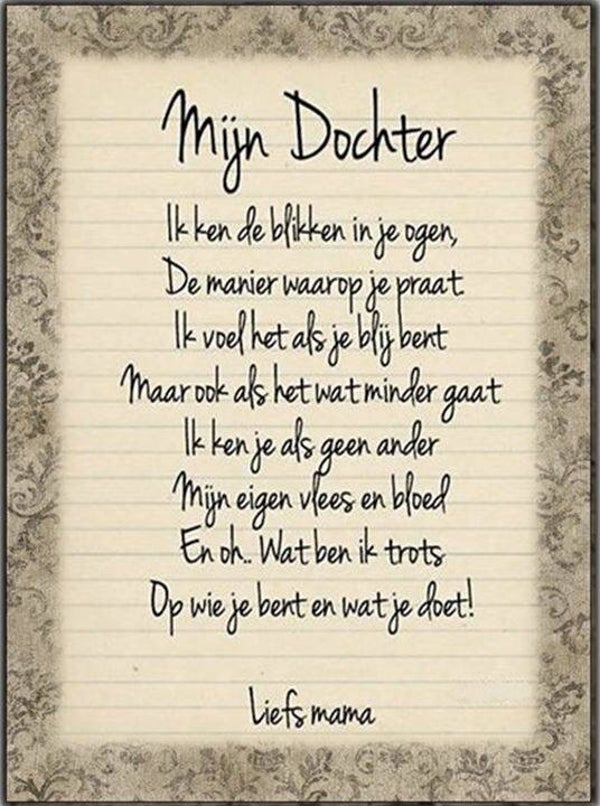 Mijn Dochter
Ik ken de blikken in je ogen,
De manier waarop je praat
Ik voel het als je blij bent
Maar ook als het wat minder gaat
Ik ken je als geen ander
Mijn eigen vlees en bloed
En oh.. Wat ben ik trots
Op wie je bent en wat je doet!
Liefs mama